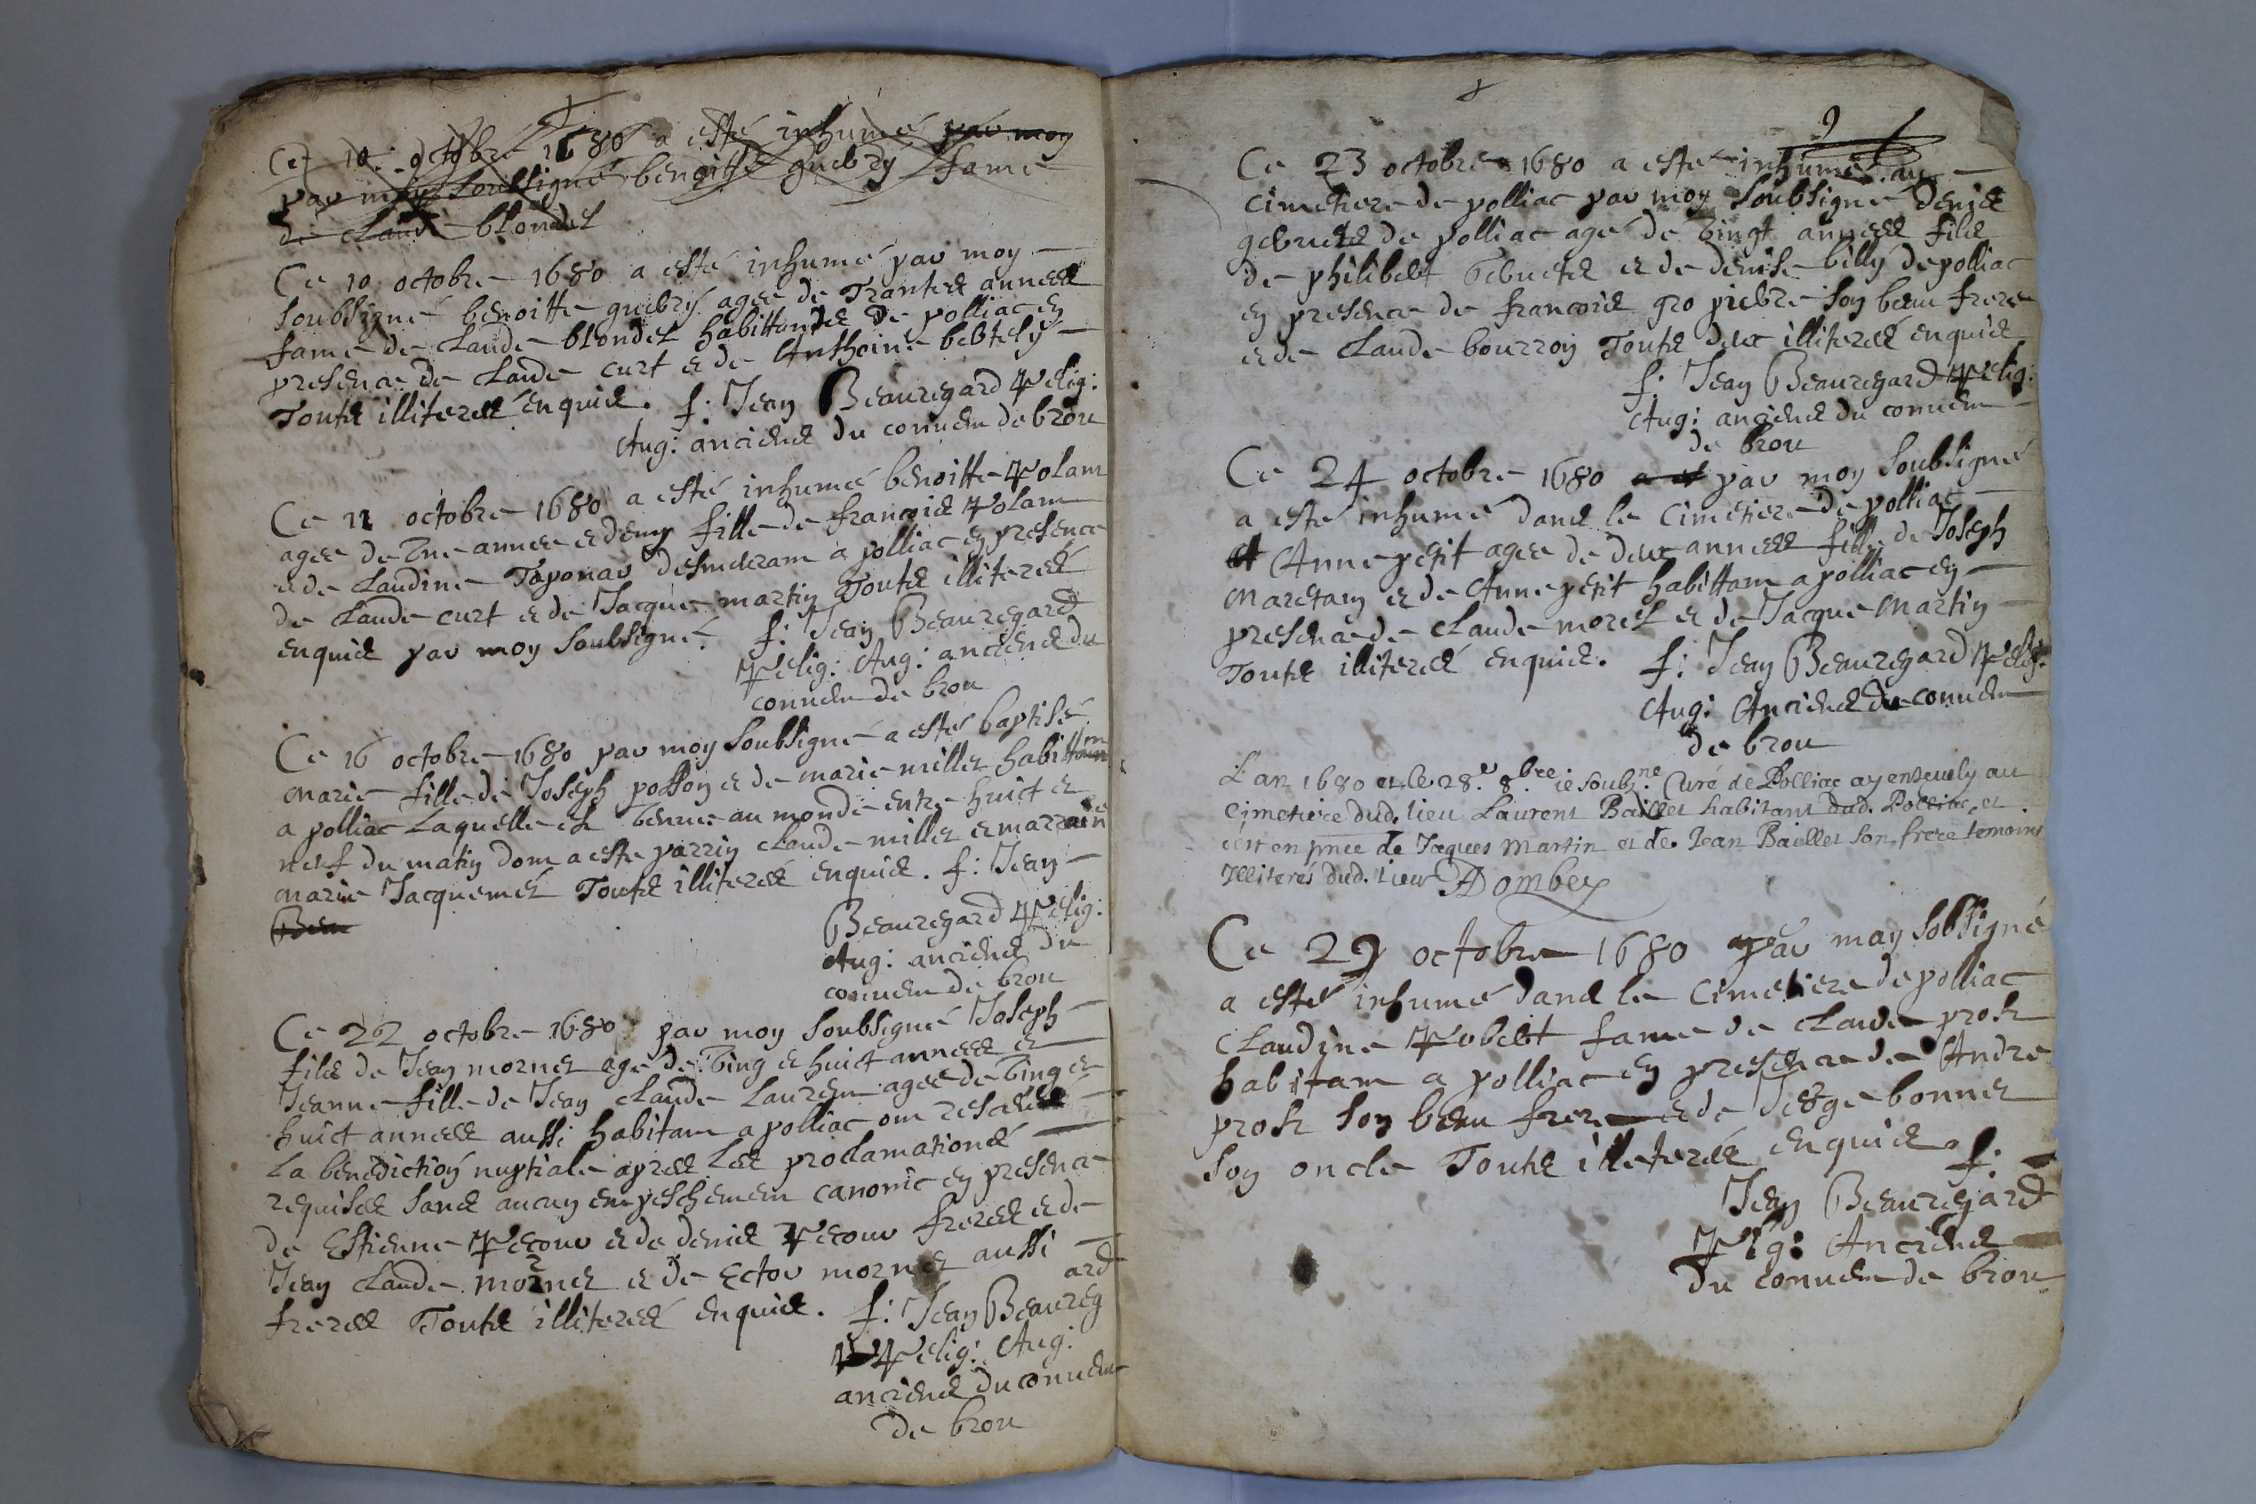 Ce 10 octobre 1680 a esté inhumé par moy
par moy soubsigné benoitte guebry fame
de Claude blondel
Ce 10 octobre 1680 a esté inhumé par moy
soubsigné benoitte guebry agee de Trantes annees
fame de Claude blondel habittantes de polliac en
presence de Claude curt et de Anthoine bertely
Touts illiterés enquis. f: Jean Beauregard Relig:
Aug: anciens du convent de brou
Ce 11 octobre 1680 a esté inhumé benoitte Rolam
agee de une annee et demy fille de francois Rolam
et de Claudine Taponar demeuram a polliac en presence
de Claude curt et de Jacque martin Touts illiterés
enquis par moy soubsigné. f: Jean Beauregard
Relig: Aug: anciens du
convent de brou
Ce 16 octobre 1680 par moy soubsigné a esté baptisé
marie fille de Joseph posson et de marie millet habittam
a polliac Laquelle est venue au monde entre huict et
neuf du matin dom a este parrin Claude millet et marraine
marie Jacquemet Touts illiterés enquis. f: Jean
Beau
Beauregard Relig:
Aug: anciens du
convent de brou
Ce 22 octobre 1680 par moy soubsigné Joseph
fils de Jean mornet age de ving et huict annees et
Jeanne fille de Jean Claude Laurem agee de ving et
huict annees aussi habitam a polliac om reseus
La benediction nuptiale apres Les proclamations
requises sans aucun empeschemem canonic en presence
de Estienne Recour et de denis Recour freres et de
Jean Claude mornet et de Ector mornet aussi
freres Touts illiterés enquis. f: Jean Beauregard
Relig: Aug:
anciens du convent
de brou
Ce 23 octobre 1680 a esté inhumé au
cimetiere de polliac par moy soubsigné denis
gebuete de polliac agé de vingt annees fils
de philibert gebuete et de denise billy de polliac
en presence de francois gro pierre son beau frere
et de Claude bourron Touts deux illiterés enquis
f: Jean Beauregard Relig:
Aug: anciens du convent
de brou
Ce 24 octobre 1680 a est par moy soubsigné
a esté inhumé dans le cimetiere de polliac
et Anne petit agee de deux annees fille de Joseph
maretain et de Anne petit habittam a polliac en
presence de Claude morel et de Jacque martin
Touts illiterés enquis. f: Jean Beauregard Relig:
Aug: Anciens du convent
de brou
L'an 1680 et le 28e 8bre ie soubzné Curé de Polliac ay ensevely au
cimetiere dud. lieu Laurent Baillet habitant dud. Polliac, et
c'est en pnce de Jaques Martin et de Jean Baillet son frere temoins
Illiterés dud. lieu Dombey
Ce 29 octobre 1680 par moy sobsigné
a esté inhumé dans le cimetiere de polliac
Claudine Robert fame de Claude prost
habitam a polliac en presence de Andre
prost son beau frere et de Jeorge bonnet
son oncle Touts illeterés enquis. f:
Jean Beauregard
Relig: Anciens
du convent de brou